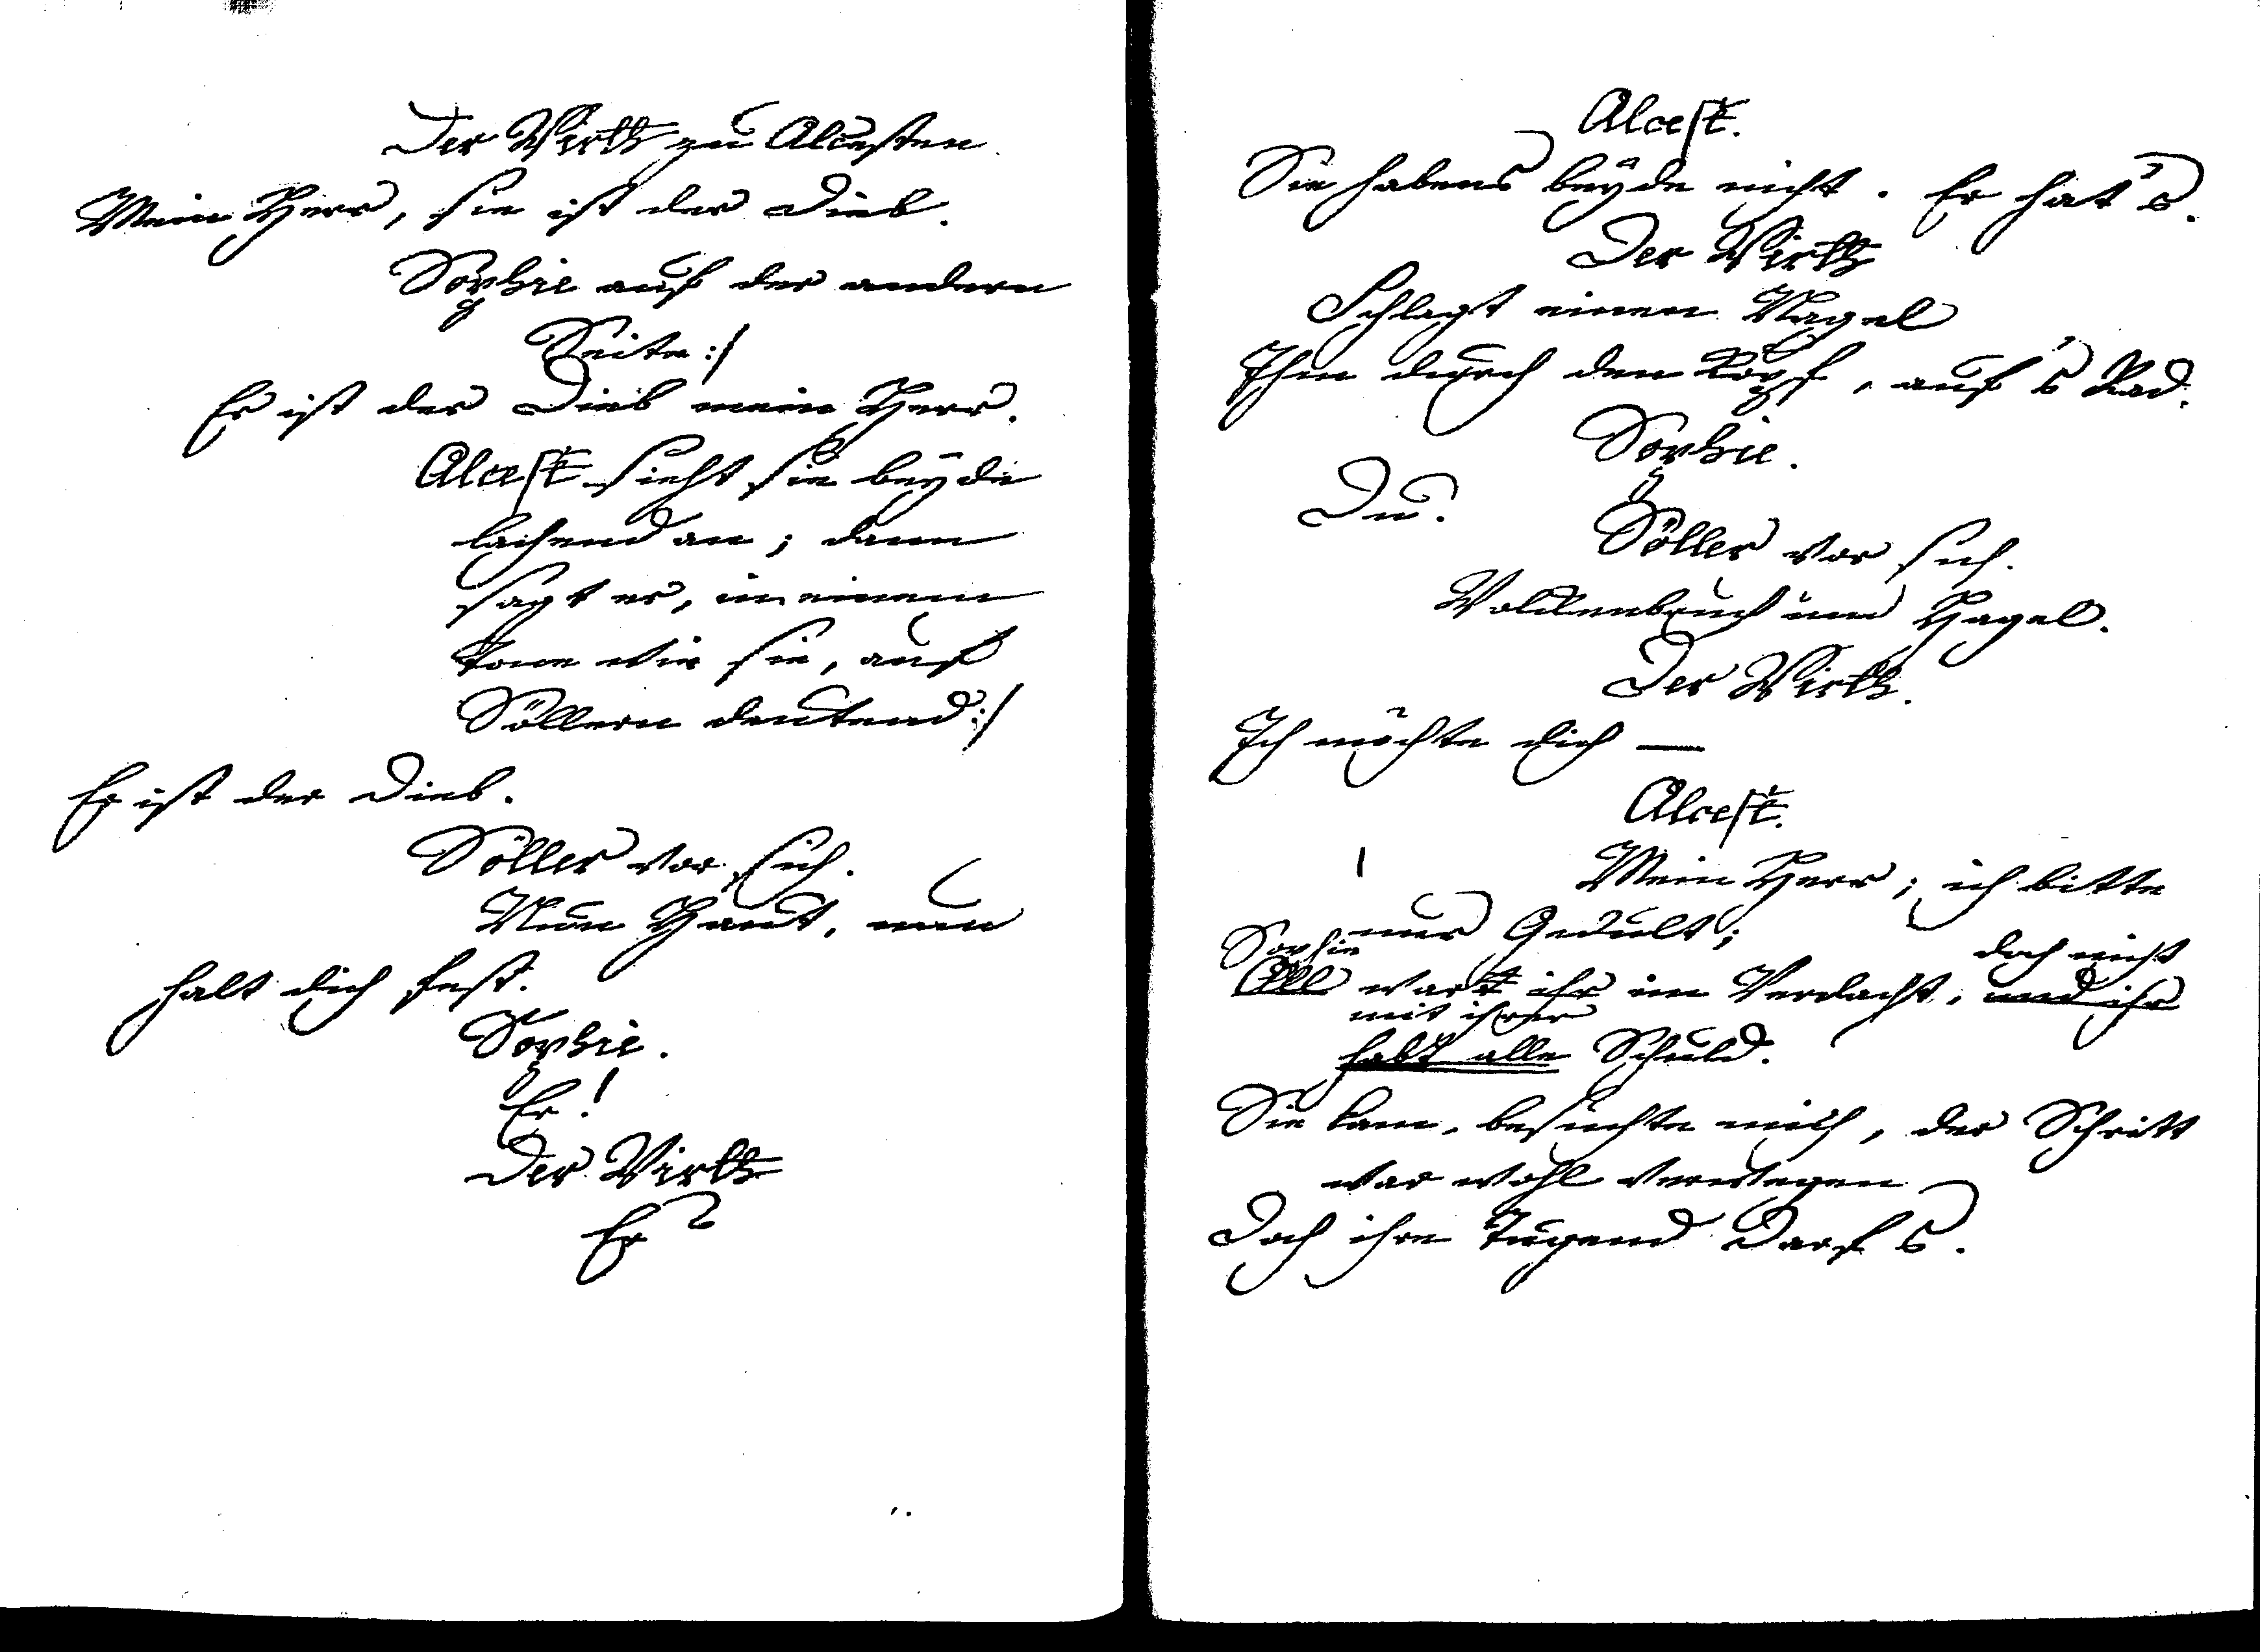 Der Wirth zu Alcesten
Mein Herr, sie ist der Dieb.
Sophie auf der andern
Seite :/
Er ist der Dieb mein Herr.
Alcest sieht sie beyde
lachend an; dann
sagt er, in einem
Tone wie sie, auf
Söllern deutend :/
Er ist der Dieb.
Söller vor sich.
Nun Haut, nun
halt dich fest.
Sophie.
Er!
Der Wirth
Er?
Alcest.
Sie habens beyde nicht. Er hat's.
Der Wirth
Schlagt einen Nagel
Ihm durch den Kopf, auf's Rad.
Sophie.
Du?
Söller vor sich.
Wolckenbruch und Hagel.
Der Wirth.
Ich möchte dich —
Alcest.
Mein Herr; ich bitte
nur Gedult;
Sophie doch nicht
All wart ihr im Verdacht, und ihr
mit ihrer
habt alle Schuld.
Sie kam, besuchte mich, der Schritt
war wohl verwegen
Doch ihre Tugend Darf s.